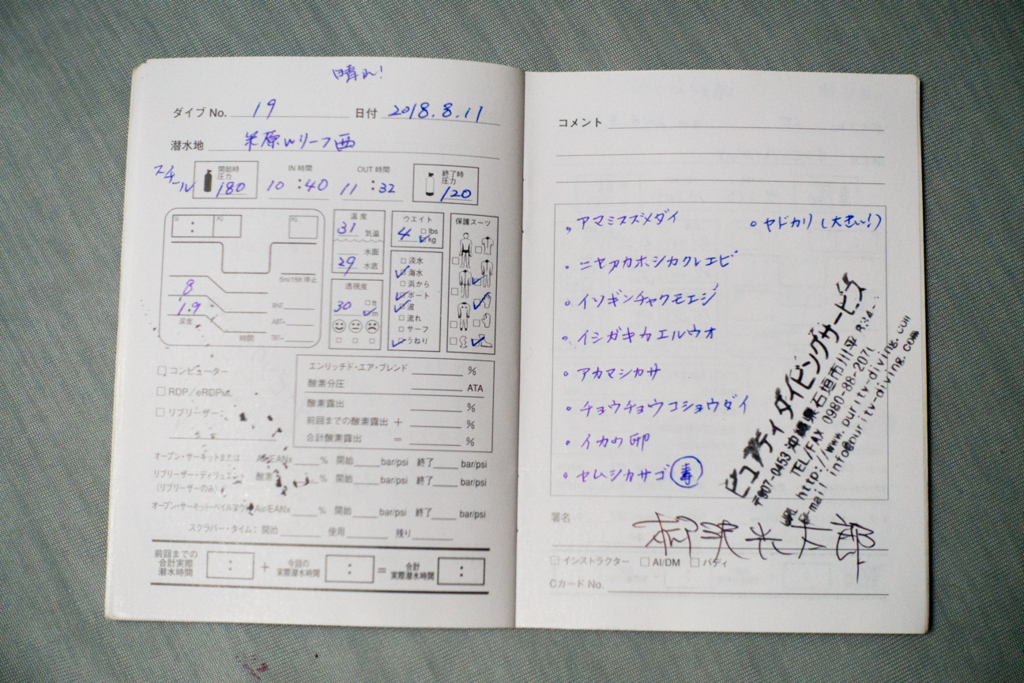 晴れ!
ダイブ No. 19 日付 2018.8.11
潜水地 米原Wリーフ西
スチール
開始時圧力 180
IN 時間 10:40
OUT 時間 11:32
終了時圧力 120
8
1.9
深度
時間
5m/15ft 停止
温度
31 気温
水面
29 水底
透視度
30 ft ✓m
ウエイト
4 lbs ✓kg
□淡水
✓海水
□浜から
✓ボート
✓波
□流れ
□サーフ
✓うねり
保護スーツ
□ コンピューター
□ RDP/eRDPML
□ リブリーザー:
エンリッチド・エア・ブレンド %
酸素分圧 ATA
酸素露出 %
前回までの酸素露出 + %
合計酸素露出 = %
オープン・サーキットまたは Air/EANx % 開始 bar/psi 終了 bar/psi
リブリーザー・ディリュエント 酸素 % 開始 bar/psi 終了 bar/psi
(リブリーザーのみ)
オープン・サーキット・ベイルアウト Air/EANx % 開始 bar/psi 終了 bar/psi
スクラバー・タイム:開始 使用 残り
前回までの合計実際潜水時間 : + 今回の実際潜水時間 : = 合計実際潜水時間 :
コメント
アマミスズメダイ
ヤドカリ (大きい!)
ニセアカホシカクレエビ
イソギンチャクモエビ
イシガキカエルウオ
アカマシカサ
チョウチョウコショウダイ
イカの卵
セムシカサゴ 毒
ピュアティダイビングサービス
〒907-0453 沖縄県石垣市川平
TEL/FAX 0980-88-2071
http://www.purity-diving.com
e-mail info@purity-diving.com
署名 柳沢光太郎
□ インストラクター □ AI/DM □ バディ
Cカード No.